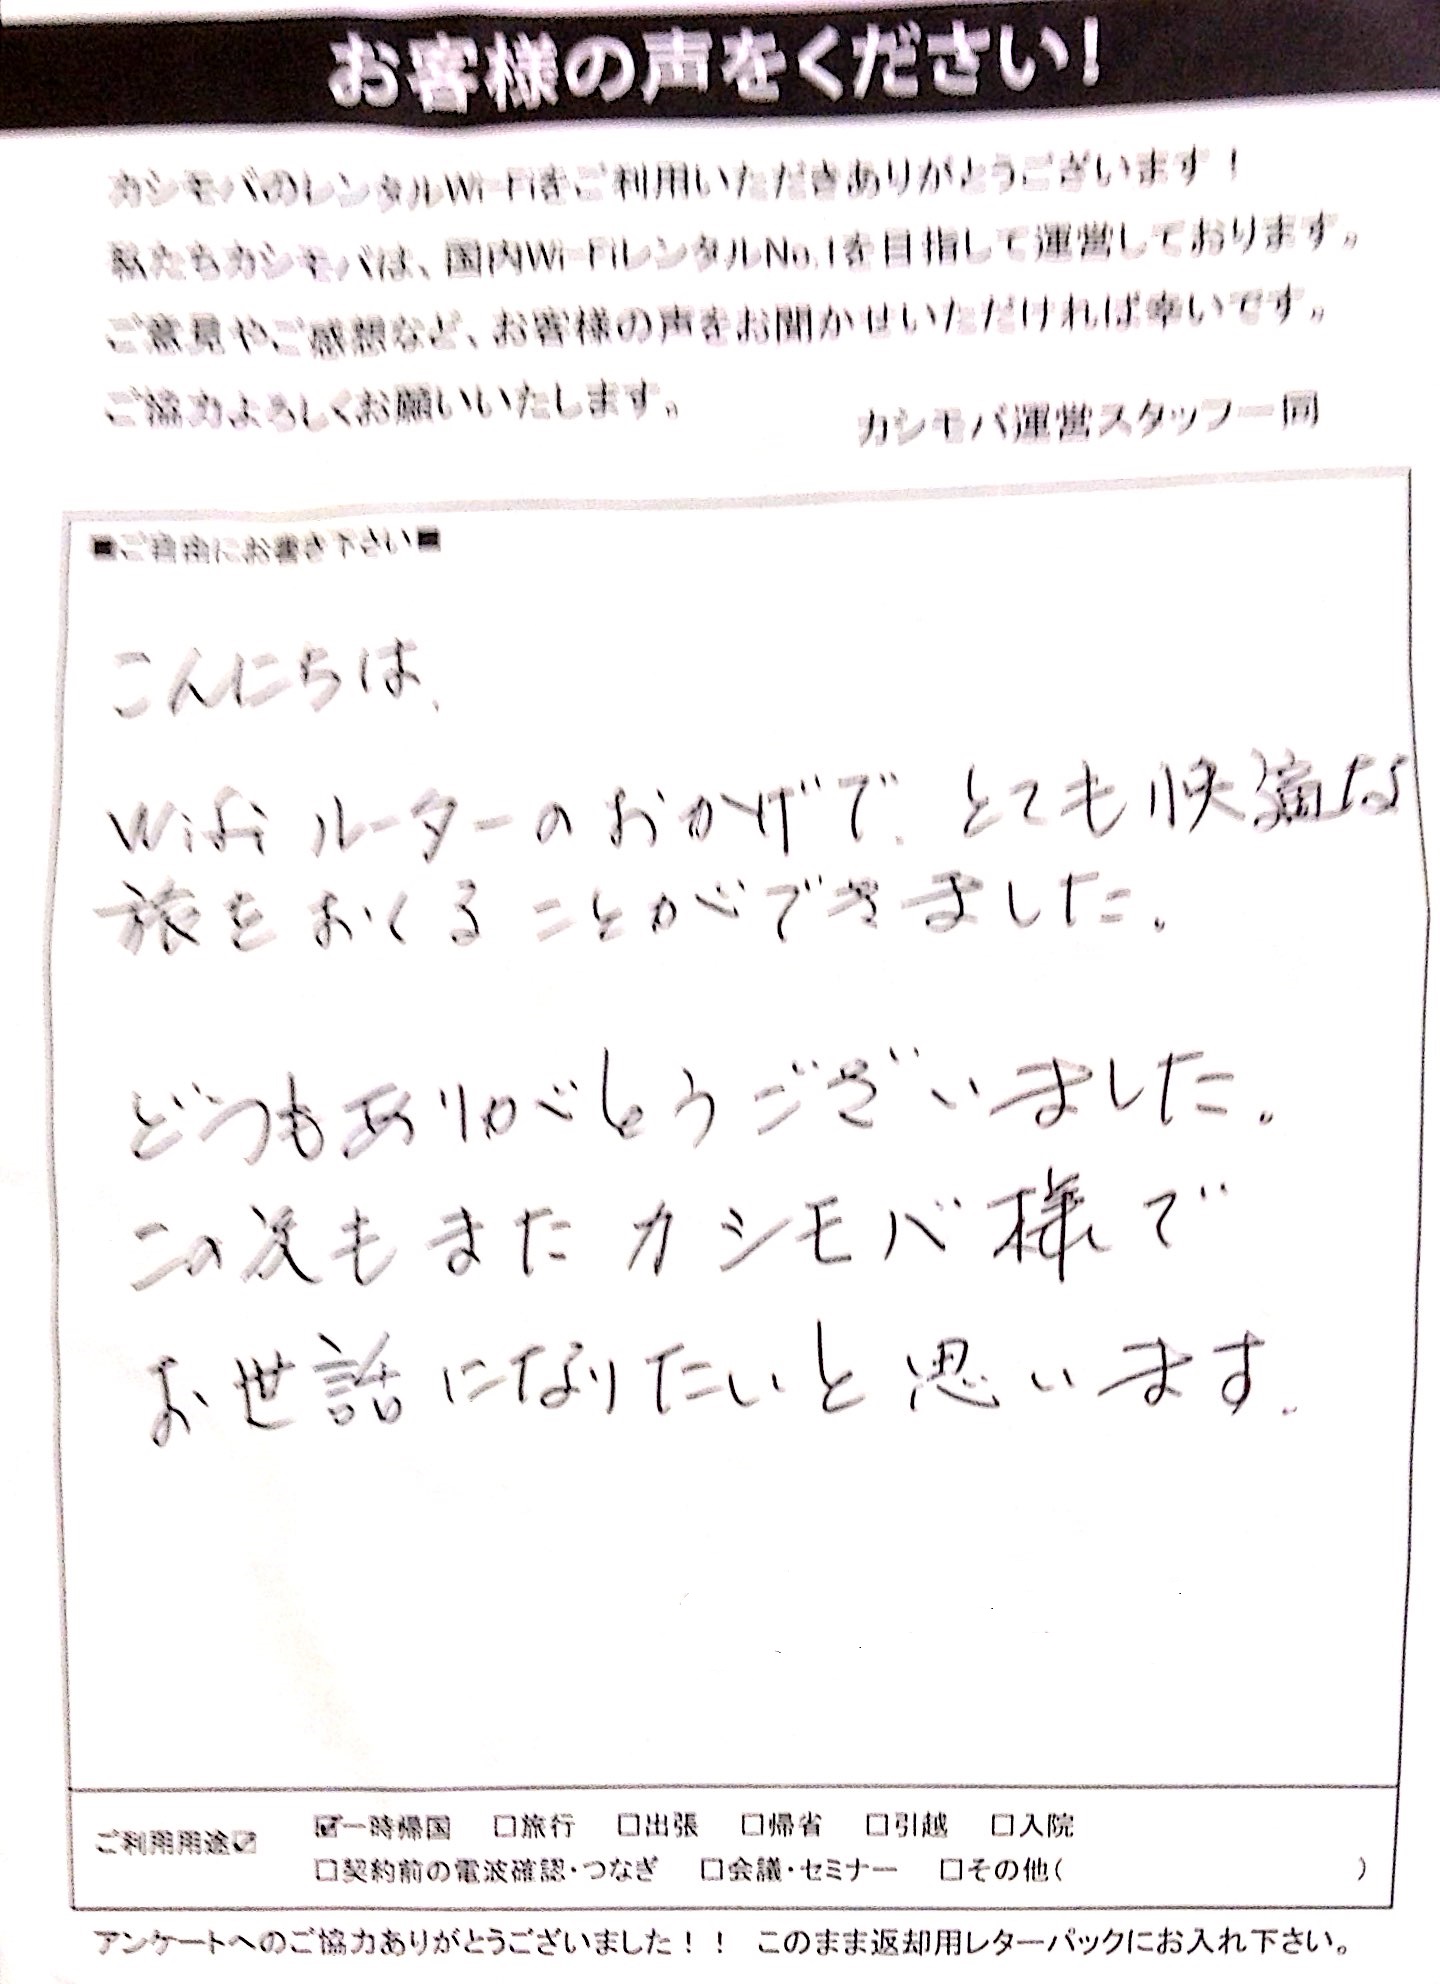 お客様の声をください!
カシモバのレンタルWi-Fiをご利用いただきありがとうございます!
私たちカシモバは、国内Wi-FiレンタルNo.1を目指して運営しております。
ご意見やご感想など、お客様の声をお聞かせいただければ幸いです。
ご協力よろしくお願いいたします。
カシモバ運営スタッフ一同
■ご自由にお書き下さい■
こんにちは、
Wifiルーターのおかげで、とても快適な
旅をおくることができました。
どうもありがとうございました。
この次もまたカシモバ様で
お世話になりたいと思います。
ご利用用途☑ ☑一時帰国 □旅行 □出張 □帰省 □引越 □入院
□契約前の電波確認・つなぎ □会議・セミナー □その他( )
アンケートへのご協力ありがとうございました!! このまま返却用レターパックにお入れ下さい。